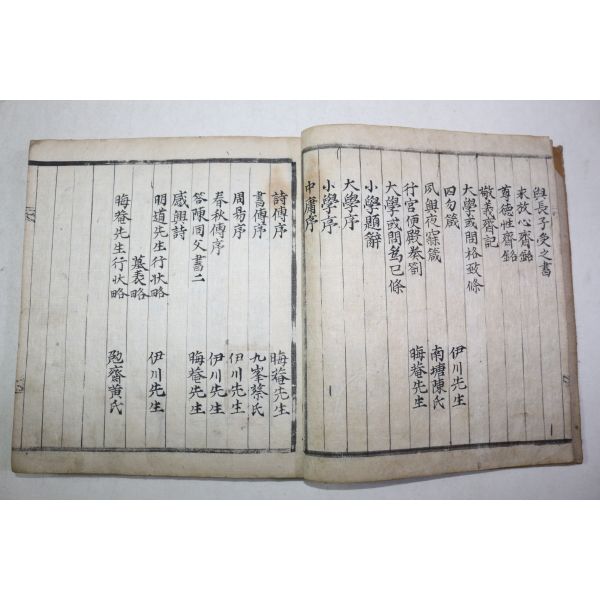 與長子受之書
求放心齋銘
尊德性齋銘
敬義齋記
大學或問格致條
四勿箴 伊川先生
夙興夜寐箴 南塘陳氏
行宮便殿奏劄 晦菴先生
大學或問爲己條
小學題辭
大學序
小學序
中庸序
詩傳序 晦菴先生
書傳序 九峯蔡氏
周易序 伊川先生
春秋傳序 伊川先生
答陳同父書二 晦菴先生
感興詩
明道先生行狀略 伊川先生
墓表略
晦菴先生行狀略 勉齋黃氏